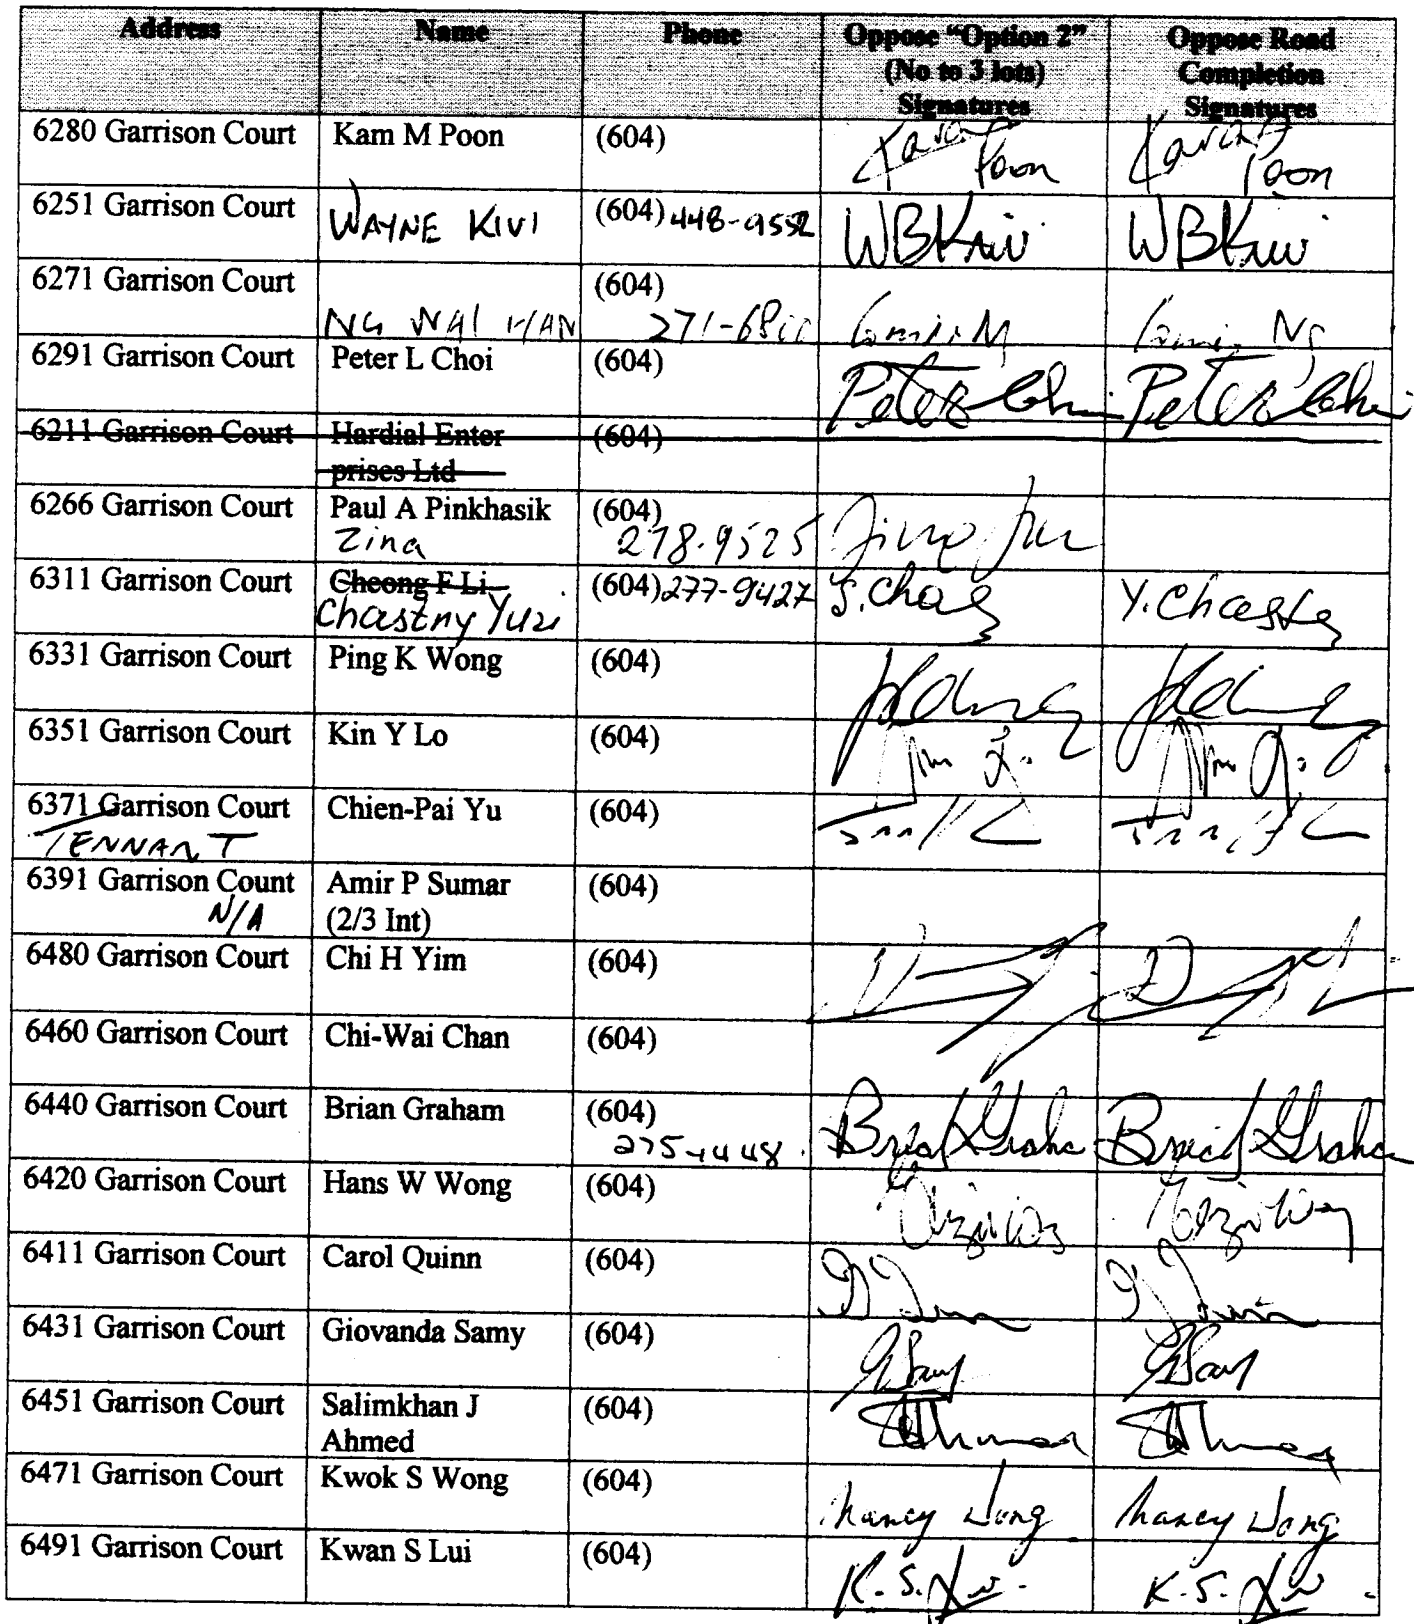 Address Name Phone Oppose “Option 2” Oppose Road
(No to 3 lots) Completion
Signatures Signatures
6280 Garrison Court Kam M Poon (604) Poon Poon
6251 Garrison Court WAYNE KIVI (604) 448-9552 WBKivi WBKivi
6271 Garrison Court (604)
NG WAI HAN 271-68 Ng
6291 Garrison Court Peter L Choi (604) Peter Choi Peter Choi
6211 Garrison Court Hardial Enter (604)
prises Ltd
6266 Garrison Court Paul A Pinkhasik (604)
Zina 278-9525 Zina
6311 Garrison Court Cheong F Li (604) 277-9427 Y. Chast Y. Chastn
Chastny Yuri
6331 Garrison Court Ping K Wong (604)
6351 Garrison Court Kin Y Lo (604)
6371 Garrison Court Chien-Pai Yu (604)
TENNANT
6391 Garrison Count Amir P Sumar (604)
N/A (2/3 Int)
6480 Garrison Court Chi H Yim (604)
6460 Garrison Court Chi-Wai Chan (604)
6440 Garrison Court Brian Graham (604) Brian Graham Brian Graham
275-4448
6420 Garrison Court Hans W Wong (604)
6411 Garrison Court Carol Quinn (604)
6431 Garrison Court Giovanda Samy (604) GSamy GSamy
6451 Garrison Court Salimkhan J (604)
Ahmed
6471 Garrison Court Kwok S Wong (604) Nancy Wong Nancy Wong
6491 Garrison Court Kwan S Lui (604) K. S. Lui K. S. Lui